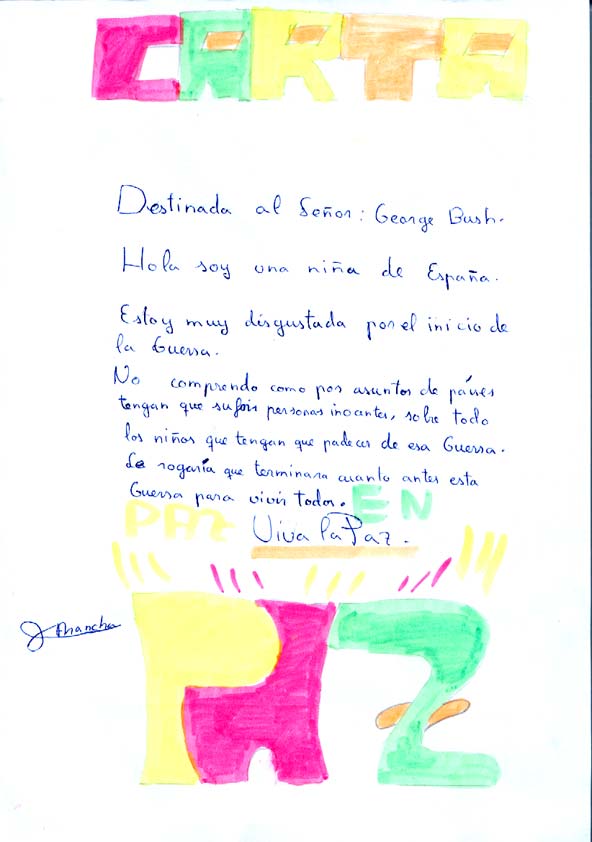 CARTA
Destinada al Señor: George Bush.
Hola soy una niña de España.
Estoy muy disgustada por el inicio de
la Guerra.
No comprendo como por asuntos de países
tengan que sufrir personas inocentes, sobre todo
los niños que tengan que padecer de esa Guerra.
Le rogaría que terminara cuanto antes esta
Guerra para vivir todos. EN
PAZ Viva la Paz.
PAZ